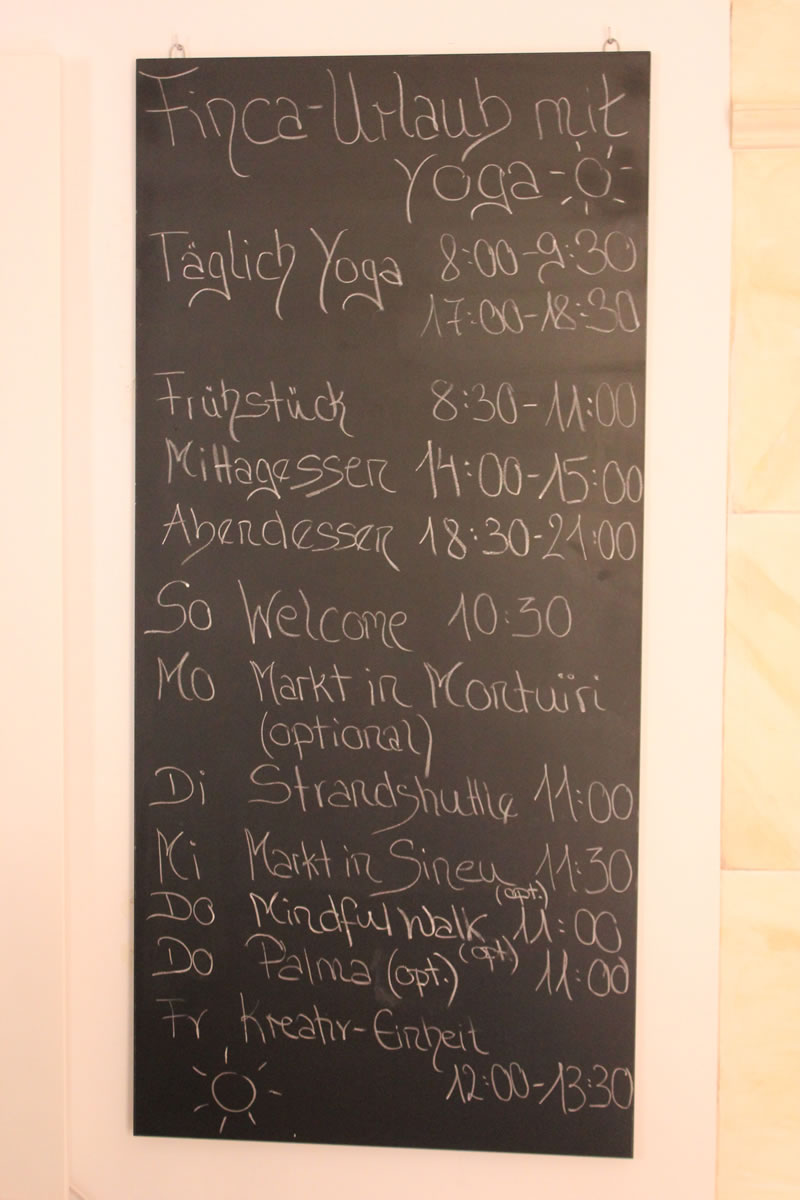 Finca-Urlaub mit
Yoga-
Täglich Yoga 8:00-9:30
17:00-18:30
Frühstück 8:30-11:00
Mittagessen 14:00-15:00
Abendessen 18:30-21:00
So Welcome 10:30
Mo Markt in Montuïri
(optional)
Di Strandshuttle 11:00
Mi Markt in Sineu 11:30
(opt.)
Do Mindful Walk 11:00
(opt.)
Do Palma (opt.) 11:00
Fr Kreativ-Einheit
12:00-13:30